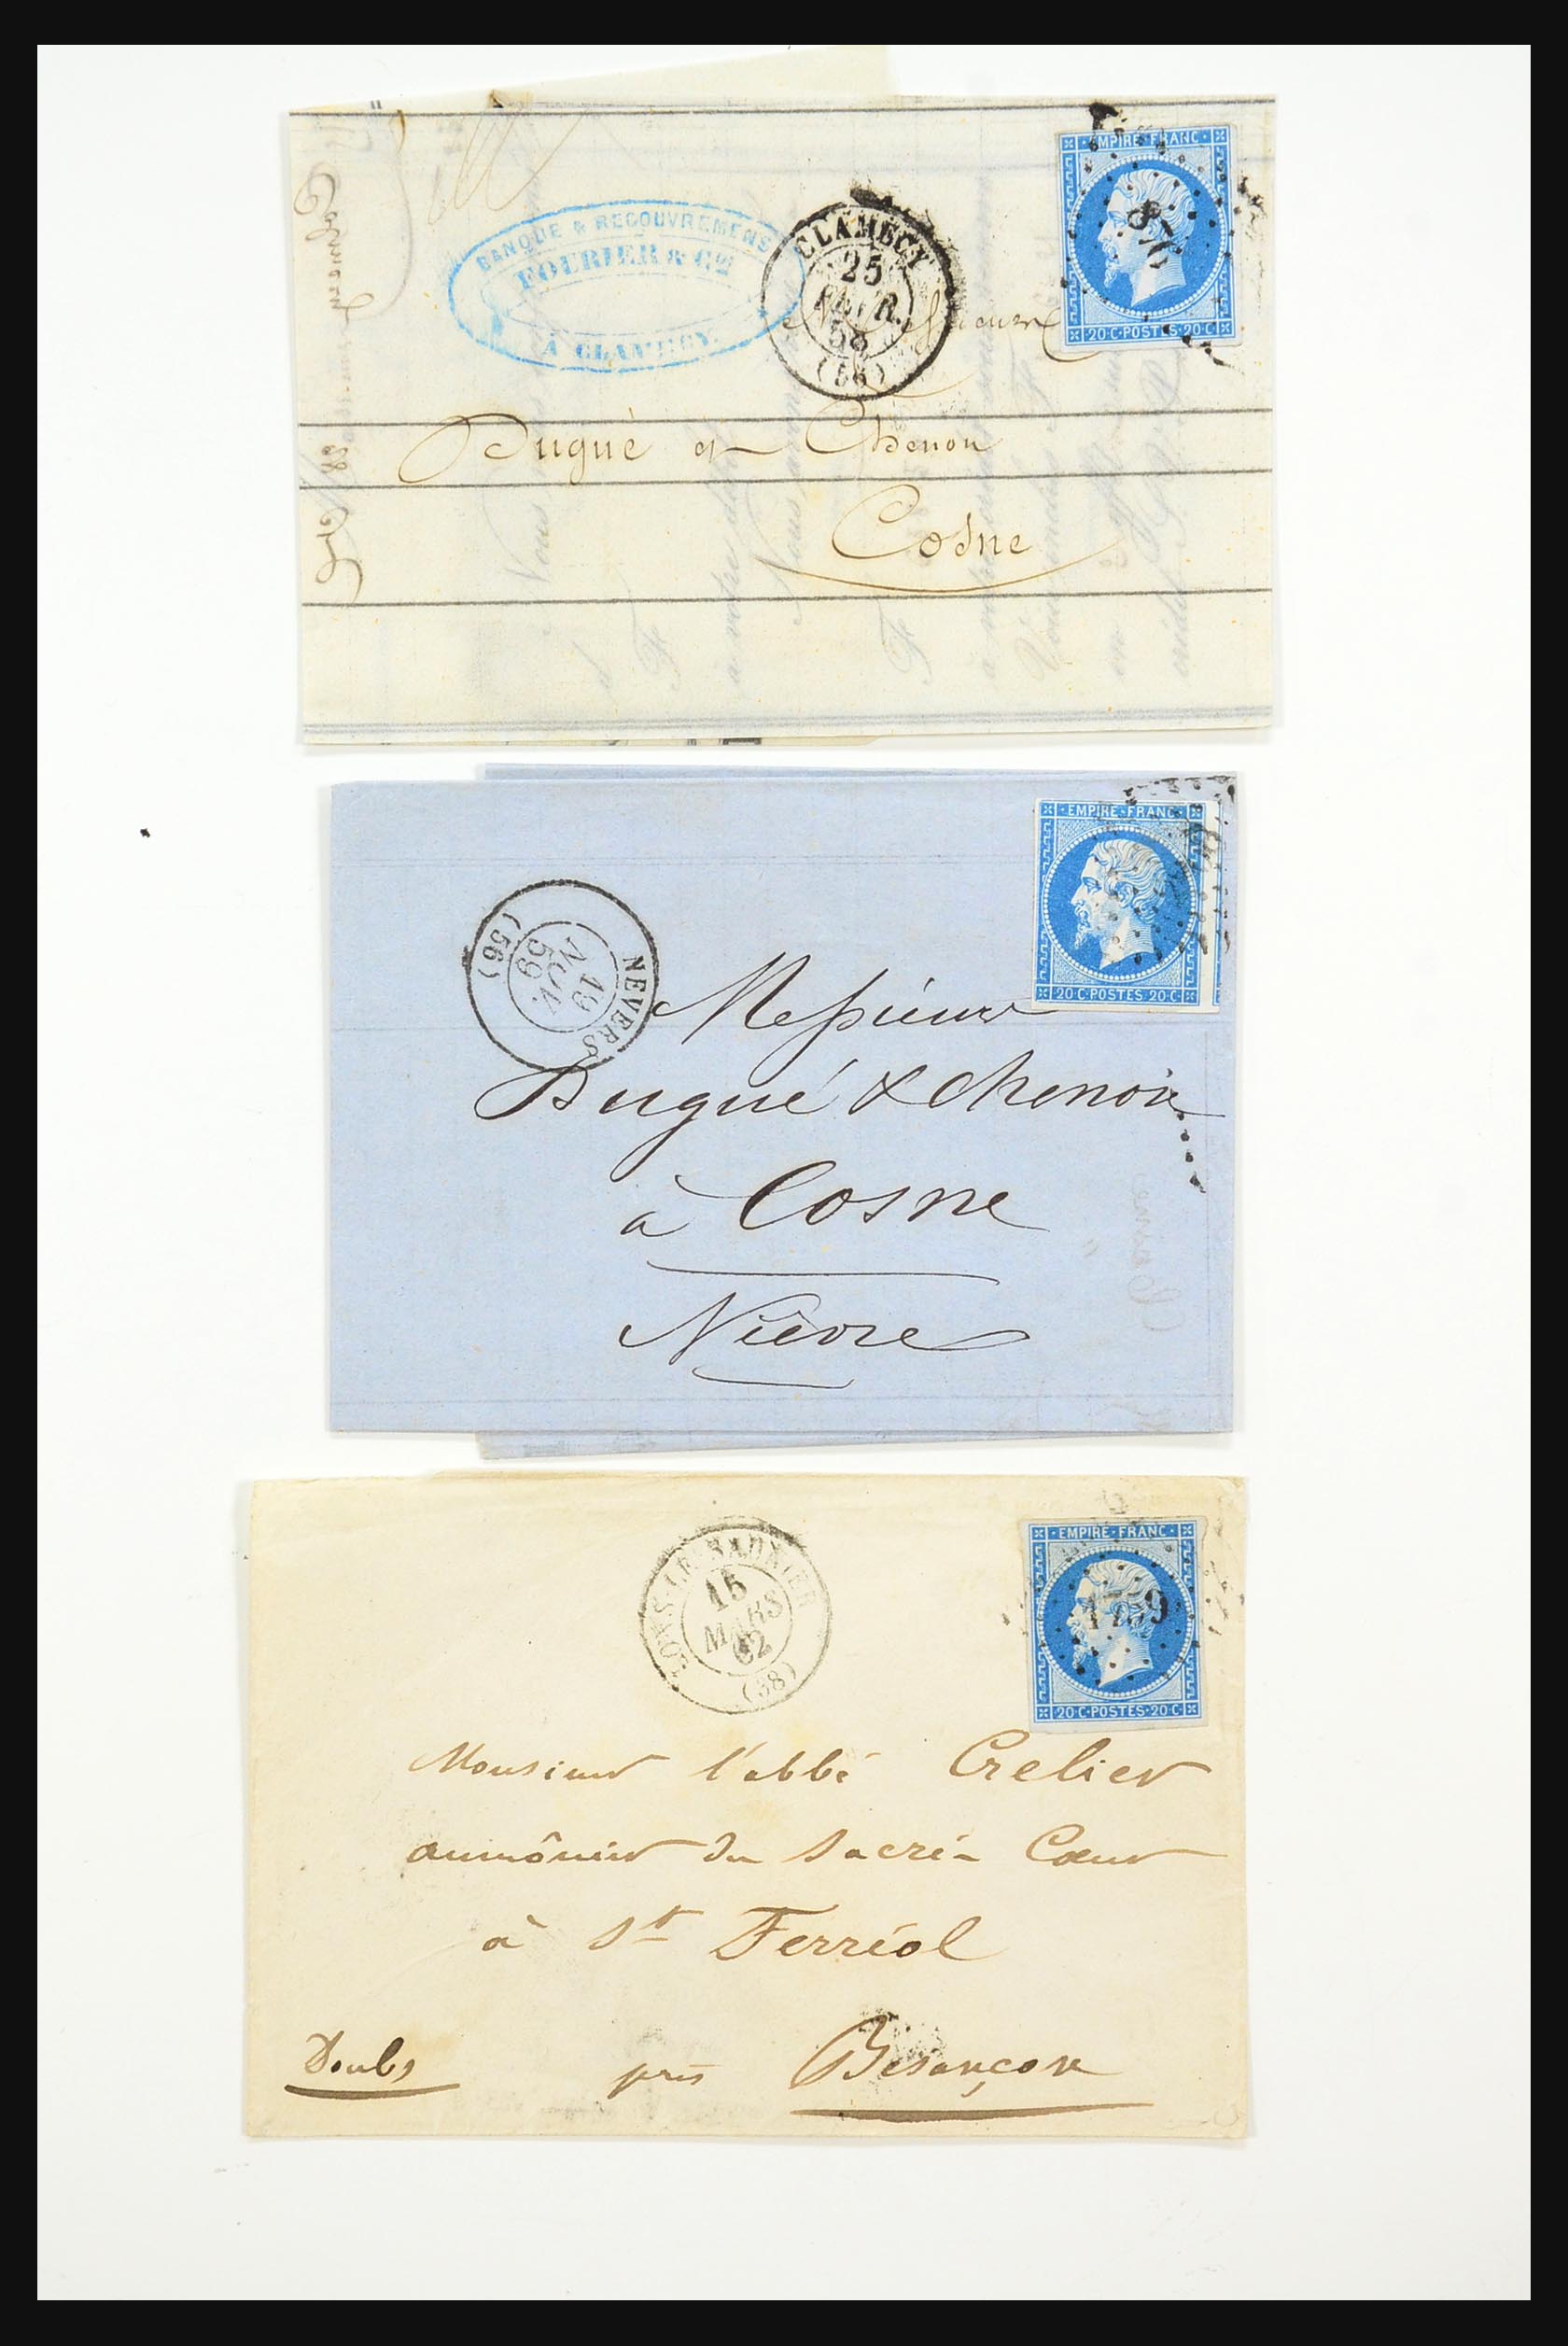 BANQUE & RECOUVREMENS
FOURIER & Cie
À CLAMECY.
CLAMECY
25
FEVR.
58
(56)
EMPIRE FRANC
876
20 C POSTES 20 C
Messieurs
Dugué et Chenou
Cosne
EMPIRE FRANC
20 C POSTES 20 C
NEVERS
19
NOV.
59
(56)
Messieurs
Dugué & Chenou
à Cosne
Nièvre
EMPIRE FRANC
1739
20 C POSTES 20 C
LONS-LE-SAUNIER
15
MARS
62
(38)
Monsieur l'abbé Crelier
aumônier du Sacré Cœur
à St Ferréol
Doubs près Besançon